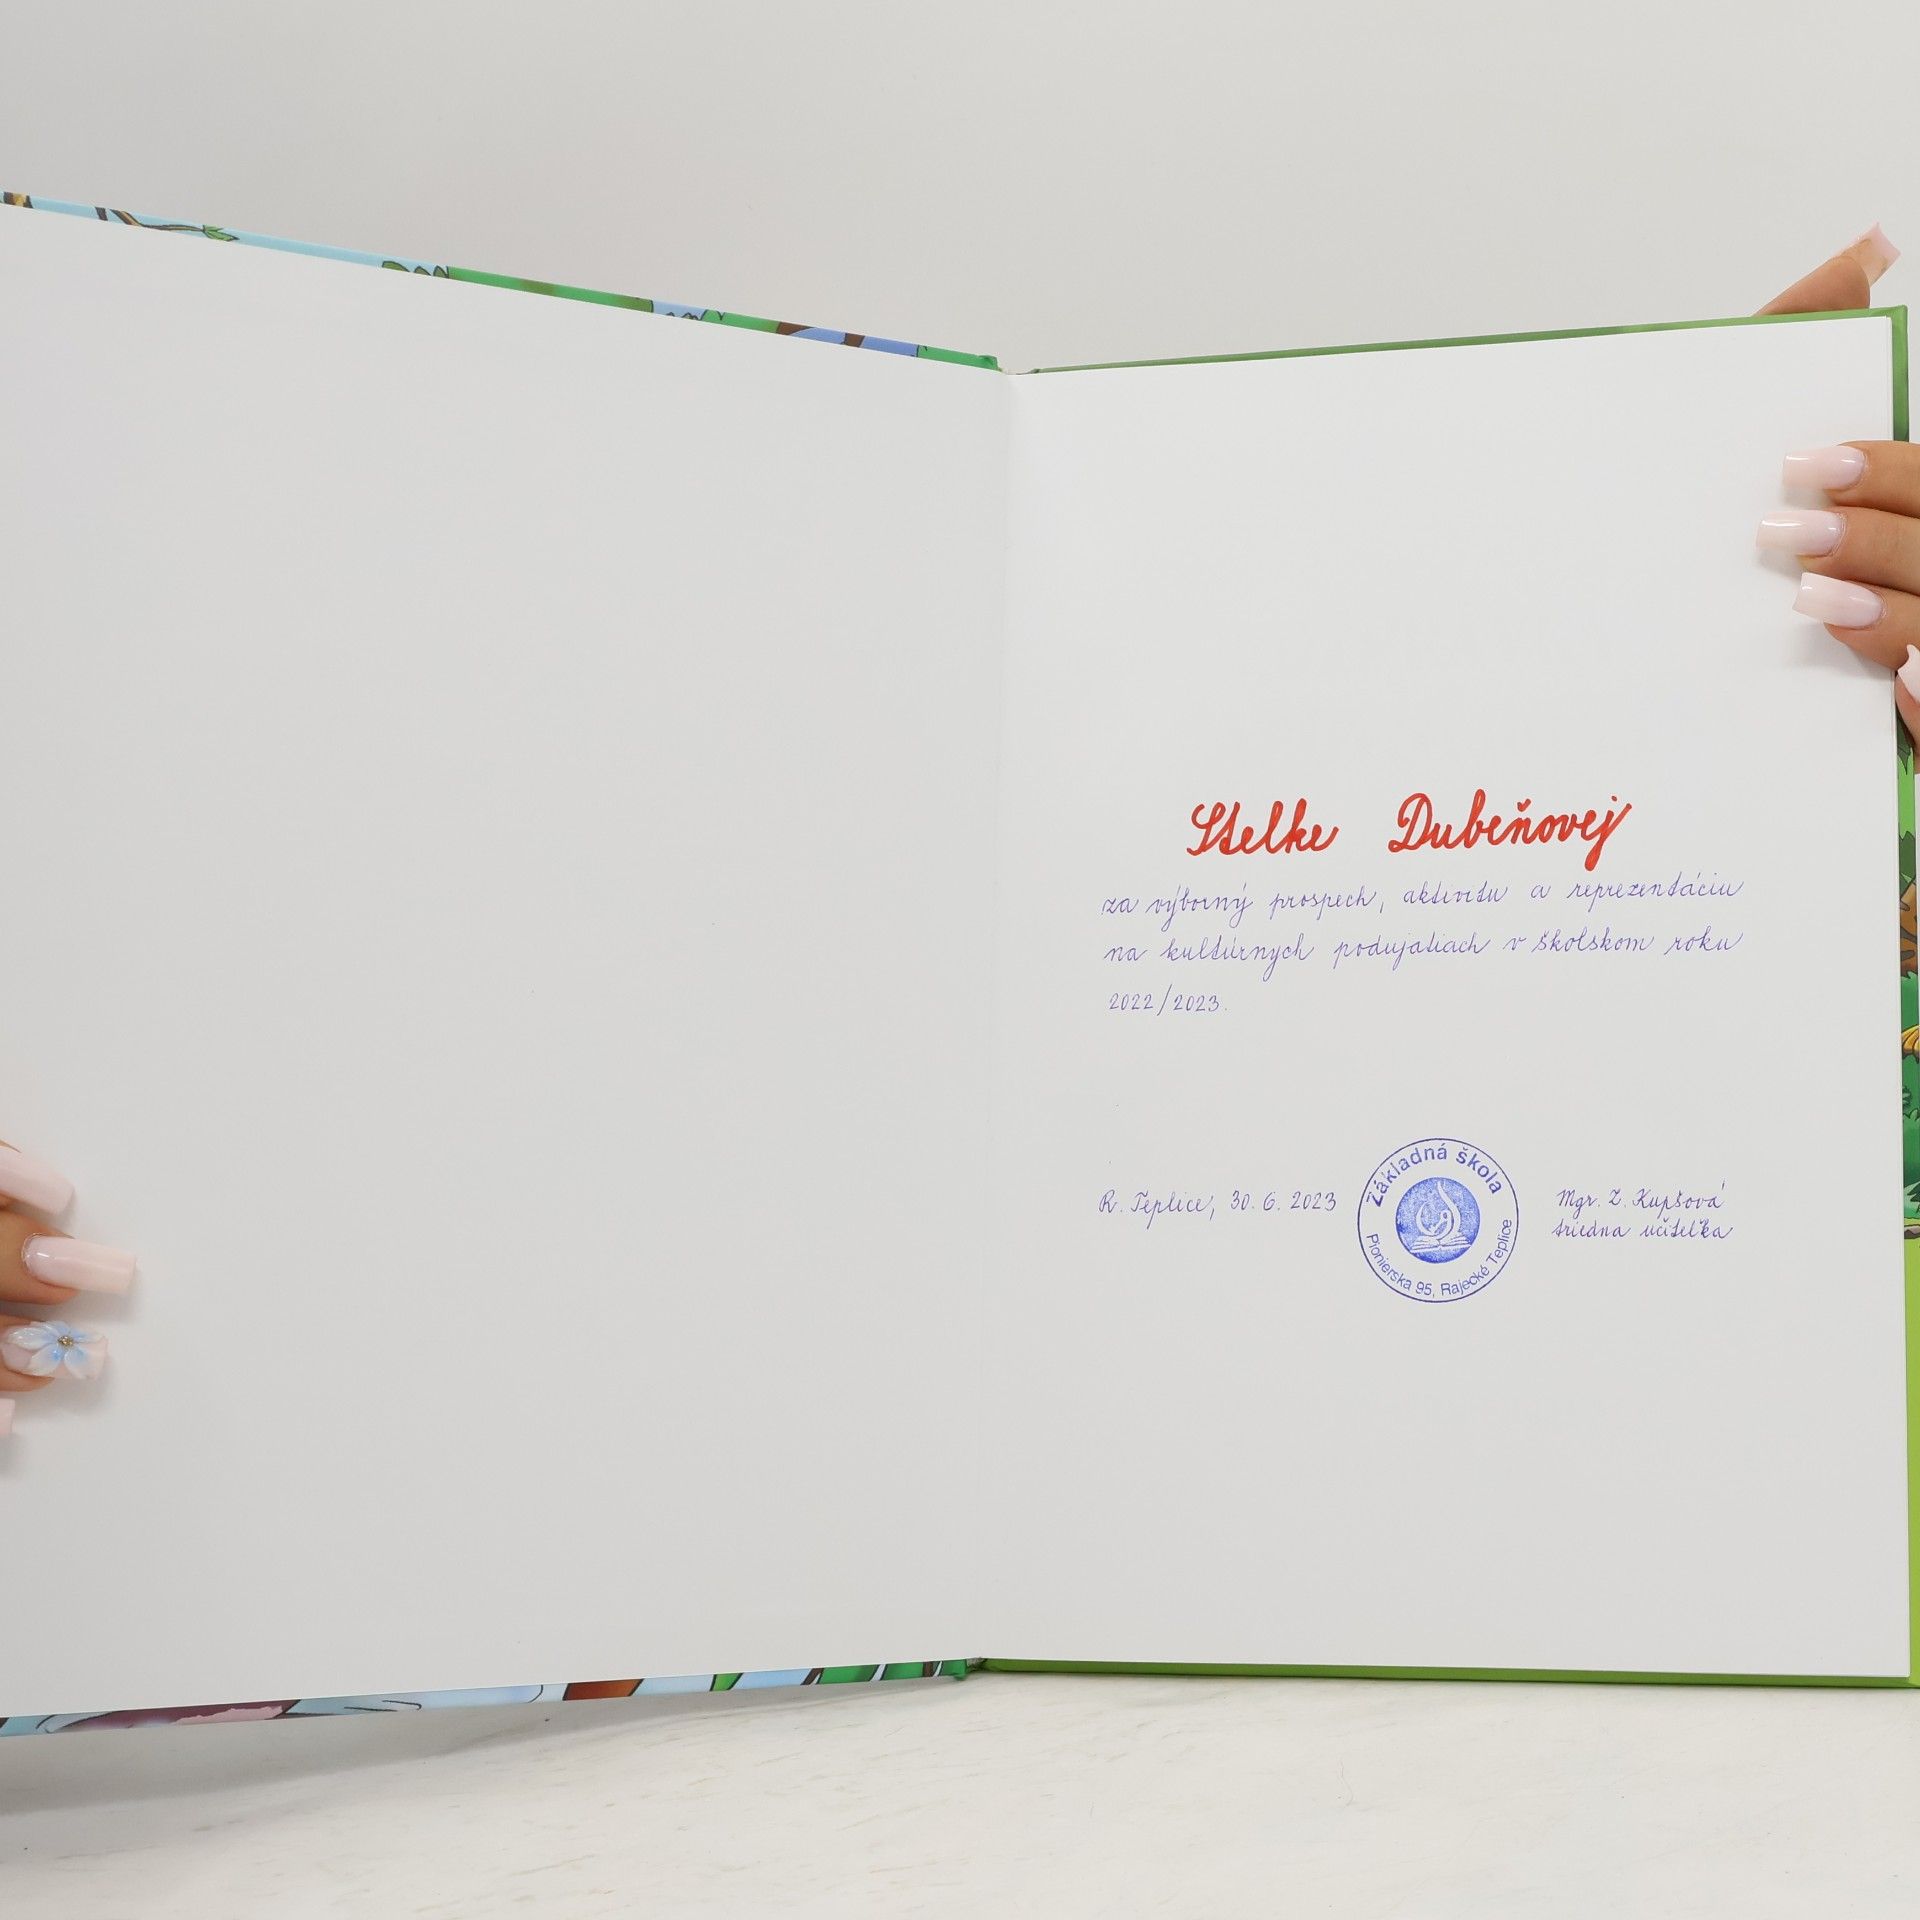 Stelke Dubeňovej
za výborný prospech, aktivitu a reprezentáciu
na kultúrnych podujatiach v školskom roku
2022/2023.
R. Teplice, 30. 6. 2023
Základná škola
Pionierska 95, Rajecké Teplice
Mgr. Z. Kupšová
triedna učiteľka